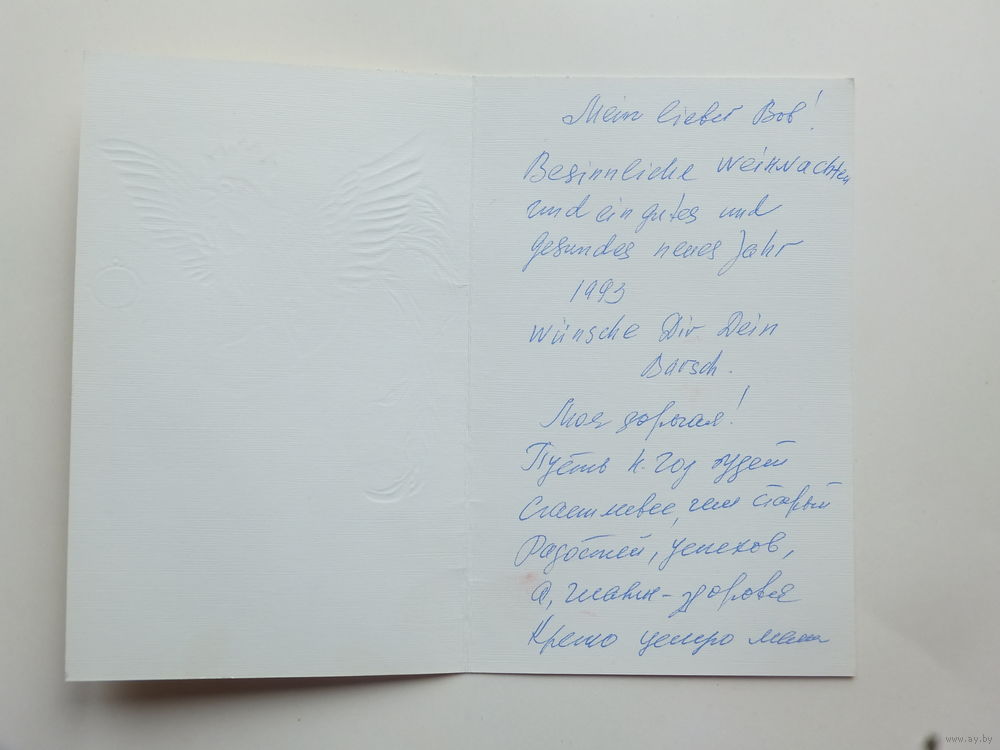 Mein lieber Bob!
Besinnliche Weihnachten
und ein gutes und
gesundes neues Jahr
1993
wünsche Dir Dein
Barsch.
Моя дорогая!
Пусть н. год будет
счастливее, чем старый
Радостей, успехов,
а, главн - здоровья
Крепко целую мама
www.ay.by